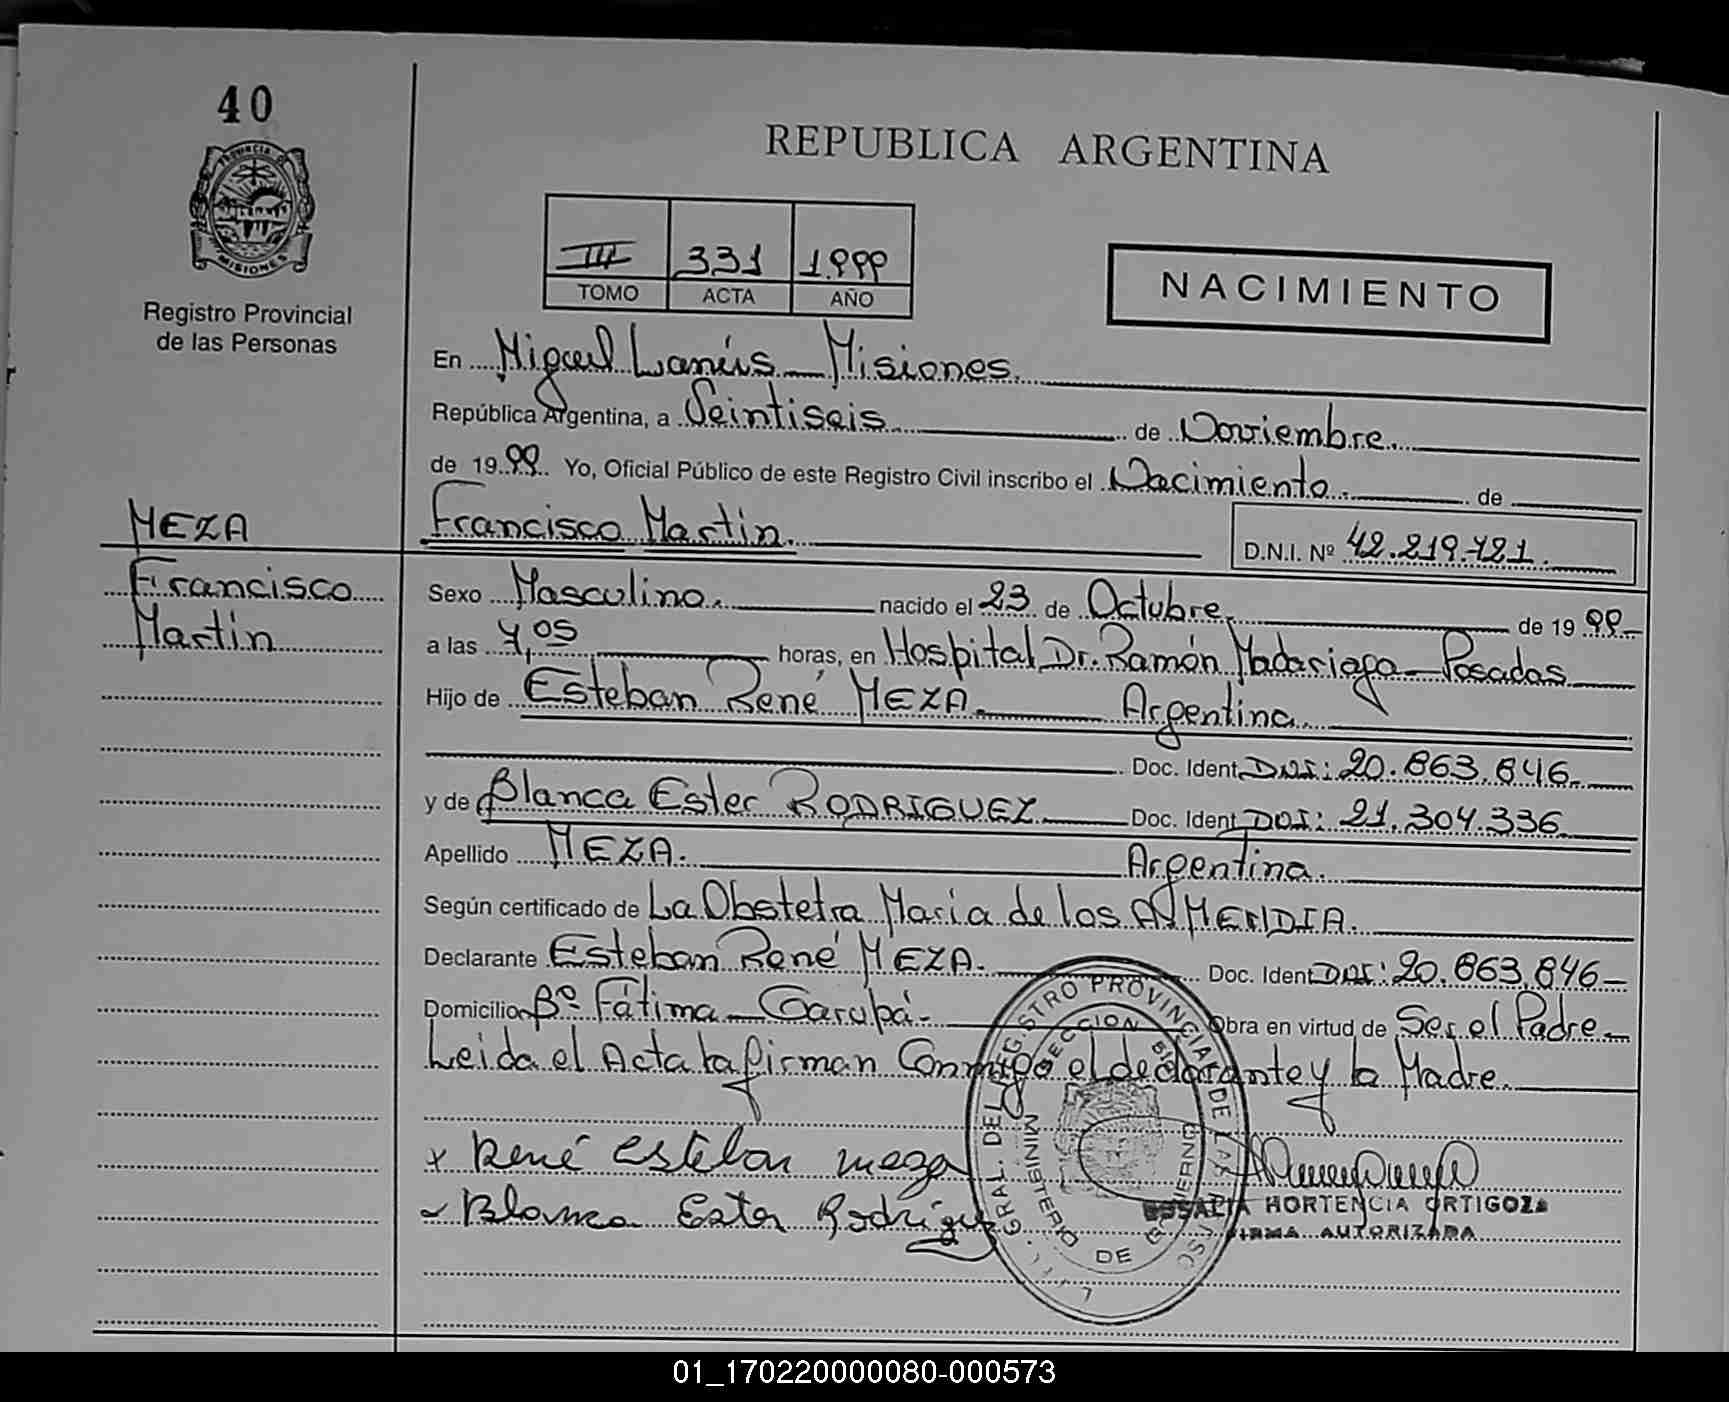 40
PROVINCIA DE
MISIONES
Registro Provincial
de las Personas
REPUBLICA ARGENTINA
III 331 1.999
TOMO ACTA AÑO
NACIMIENTO
En Miguel Lanús - Misiones.
República Argentina, a Veintiseis de Noviembre.
de 1999. Yo, Oficial Público de este Registro Civil inscribo el Nacimiento. de
MEZA
Francisco
Martin
Francisco Martin. D.N.I. Nº 42.219.121.
Sexo Masculino. nacido el 23 de Octubre. de 1999.
a las 4,05 horas, en Hospital Dr. Ramón Madariaga - Posadas
Hijo de Esteban René MEZA. Argentina.
Doc. Ident DNI: 20.863.846.
y de Blanca Ester RODRIGUEZ Doc. Ident DNI: 21.304.336
Apellido MEZA. Argentina.
Según certificado de La Obstetra Maria de los A.
Declarante Esteban René MEZA. Doc. Ident DNI: 20.863.846-
Domicilio Bº Fátima - Garupá. Obra en virtud de Ser el Padre.
Leida el Acta la firman Conmigo el declarante y la Madre.
x René esteban meza
Blanca Ester Rodriguez
ROSALIA HORTENCIA ORTIGOZA
FIRMA AUTORIZADA
GRAL. DEL REGISTRO PROVINCIAL DE LAS
MINISTERIO DE GOBIERNO
01_170220000080-000573